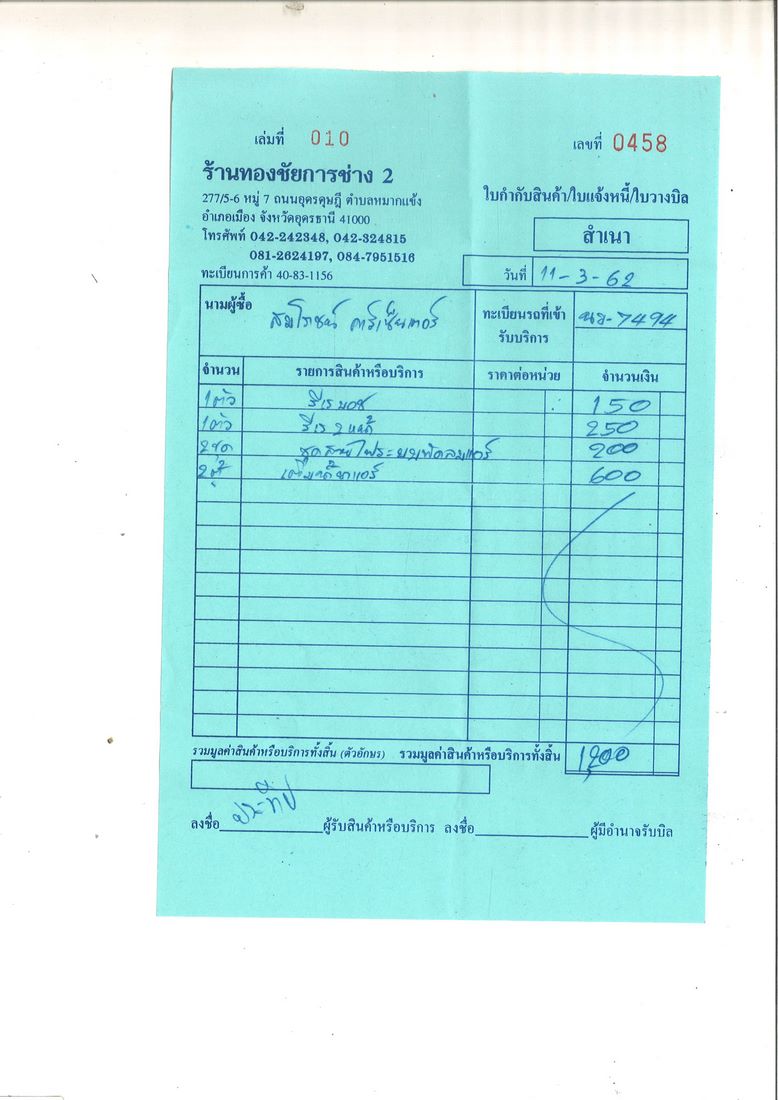 เล่มที่ 010
เลขที่ 0458
ร้านทองชัยการช่าง 2
277/5-6 หมู่ 7 ถนนอุดรดุษฎี ตำบลหมากแข้ง
อำเภอเมือง จังหวัดอุดรธานี 41000
โทรศัพท์ 042-242348, 042-324815
081-2624197, 084-7951516
ทะเบียนการค้า 40-83-1156
ใบกำกับสินค้า/ใบแจ้งหนี้/ใบวางบิล
สำเนา
วันที่ 11-3-62
นามผู้ซื้อ สมโภชน์ คาร์เซ็นเตอร์
ทะเบียนรถที่เข้า
รับบริการ
นข-7494
จำนวน รายการสินค้าหรือบริการ ราคาต่อหน่วย จำนวนเงิน
1ตัว รีเรบอช 150
1ตัว รีเร 250
2ชุด ชุดสายไฟระบบพัดลมแอร์ 200
2ตู้ เติมน้ำยาแอร์ 600
รวมมูลค่าสินค้าหรือบริการทั้งสิ้น (ตัวอักษร) รวมมูลค่าสินค้าหรือบริการทั้งสิ้น 1,200
ลงชื่อ ประทีป ผู้รับสินค้าหรือบริการ ลงชื่อ ผู้มีอำนาจรับบิล